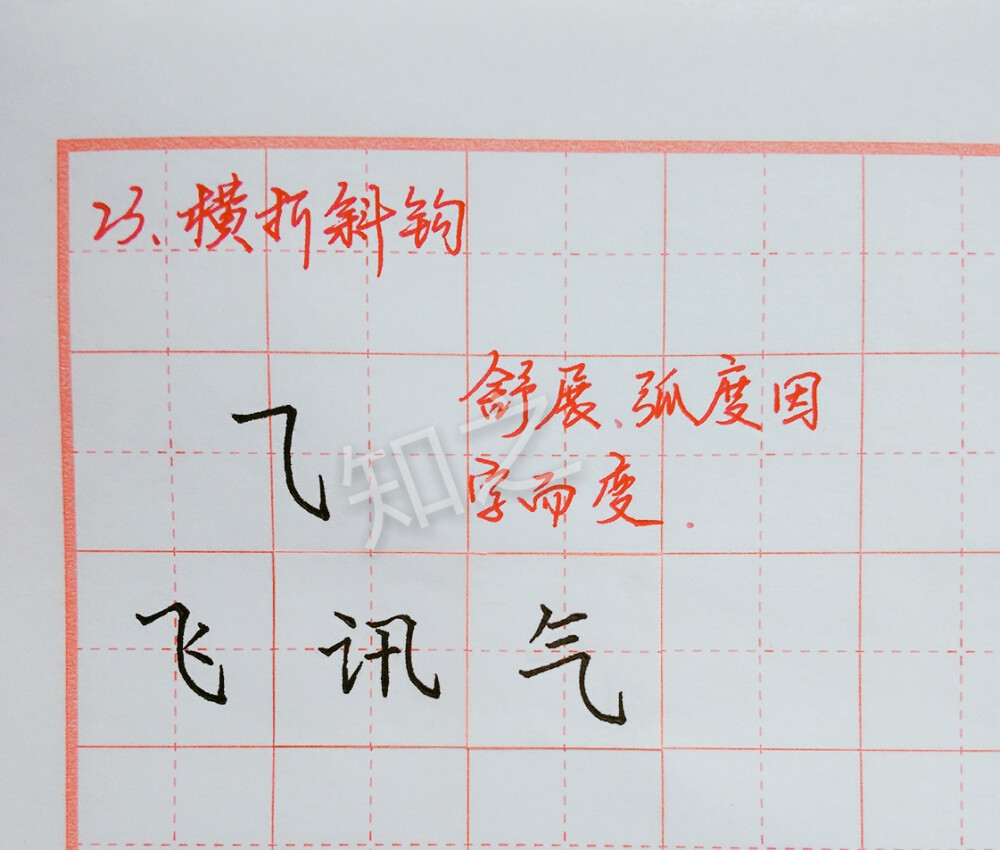 23、横折斜钩
舒展、弧度因
⺄
字而变.
知之
飞 讯 气